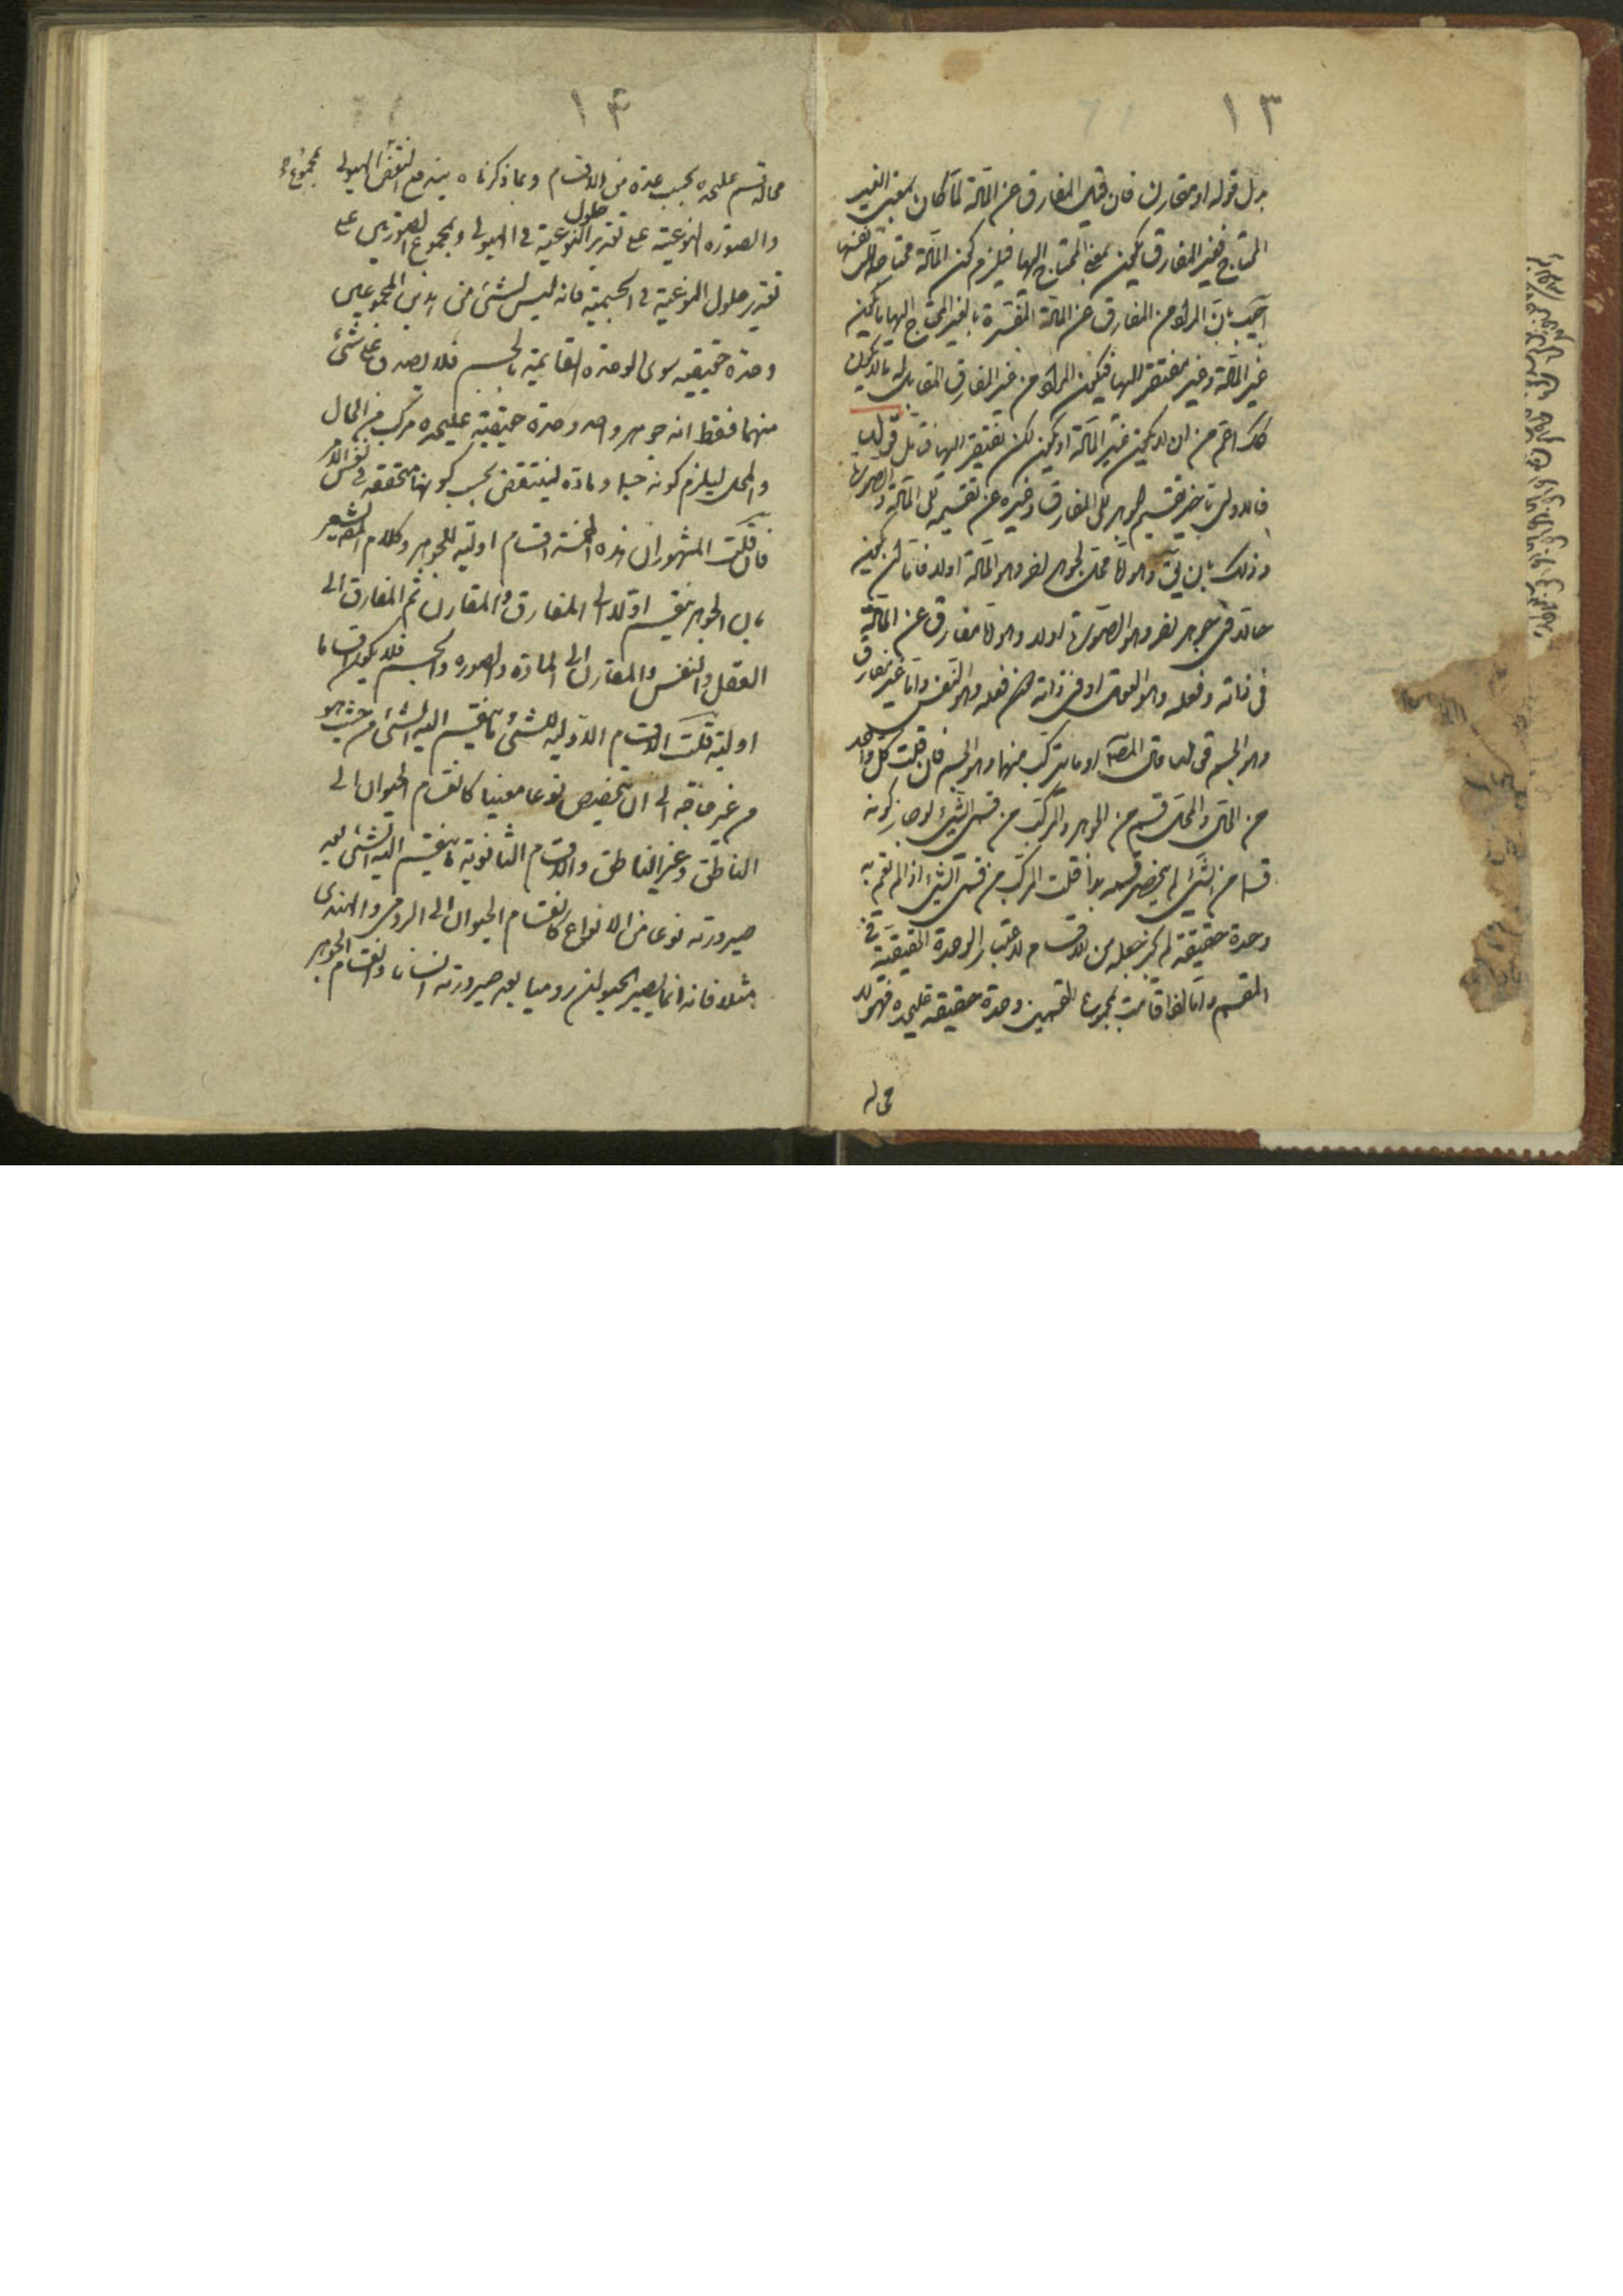 ١٣
بدل قوله او مقارن فان قيل المفارق عن المادة لما كان بمعنى الغير
المحتاج فغير المفارق يكون بمعنى المحتاج اليها فيلزم كون المادة محتاجة الى نفسها
اجيب بان المراد من المفارق عن المادة المفسرة بالغير المحتاج اليها ما يكون
غير المادة وغير مفتقر اليها فيكون المراد من غير المفارق المقابل له ما لا يكون
كك اعم من ان لا يكون غير المادة او يكون لكن يفتقر اليها
فالاولى تاخير تقسيم الجوهر الى المفارق وغيره عن تقسيمه الى المادة والصورة
وذلك بان يق وهو اما محل لجوهر اخر وهو المادة اولا فاما ان يكون
حالا في جوهر اخر وهو الصورة اولا وهو اما مفارق عن المادة
في ذاته وفعله وهو العقل او في ذاته دون فعله وهو النفس واما غير مفارق
وهو الجسم قال المص او ما يتركب منهما وهو الجسم فان قلت كل واحد
من الحال والمحل قسم من الجوهر والمركب من قسمي الشئ لو جاز كونه
قسما من الشئ لم ينحصر قسمة ابدا قلت المركب من قسمي الشئ اذا لم تقم به
وحدة حقيقة لم يجز جعله من الاقسام لاعتبار الوحدة الحقيقية في
المقسم واما اذا قامت بمجموع القسمين وحدة حقيقية عليحدة فهو لا
محالة
١٤
محالة قسم عليحده بحسب عده من الاقسام وبما ذكرناه يندفع النقض بمجموع الهيولى
والصورة النوعية على تقدير حلول النوعية في الهيولى وبمجموع الصورتين على
تقدير حلول النوعية في الجسمية فانه ليس لشئ من هذين المجموعين
وحدة حقيقية سوى الوحدة القائمة بالجسم فلا يصدق على شئ
منهما فقط انه جوهر واحد وحدة حقيقية عليحده مركب من الحال
والمحل ليلزم كونه جسما وماده لينتقض بحسب كونها متحققة في نفس الامر
فان قلت المشهور ان هذه الخمسة اقسام اولية للجوهر وكلام المص يشعر
بان الجوهر ينقسم اولا الى المفارق والمقارن ثم المفارق الى
العقل والنفس والمقارن الى المادة والصورة والجسم فلا يكون اقساما
اولية قلت الاقسام الاولية للشئ ما ينقسم اليه الشئ من حيث هو
من غير حاجة الى ان يتخصص نوعا معينا كانقسام الحيوان الى
الناطق وغير الناطق والاقسام الثانوية ما ينقسم اليه الشئ بعد
صيرورته نوعا من الانواع كانقسام الحيوان الى الرومى والهندى
مثلا فانه انما يصير الحيوان روميا بعد صيرورته انسانا وانقسام الجوهر